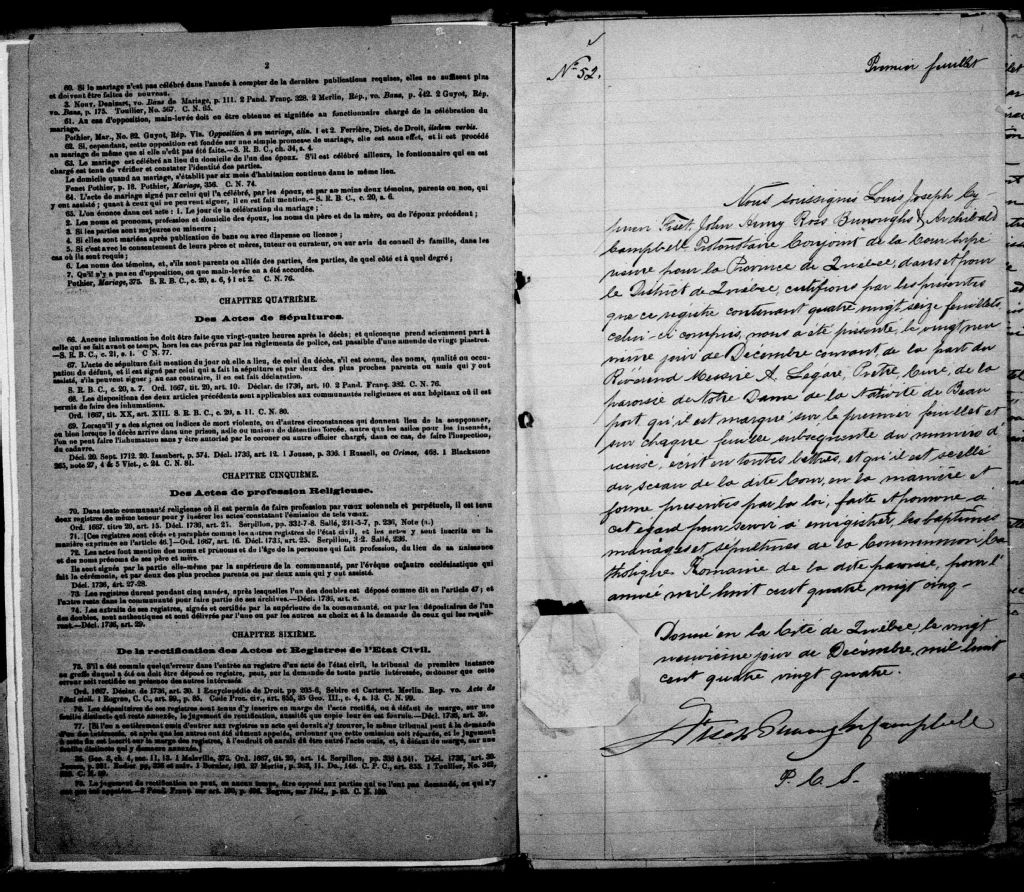 2
60. Si le mariage n'est pas célébré dans l'année à compter de la dernière publications requises, elles ne suffisent plus
et doivent être faites de nouveau.
3. Nouv. Denizart, vo. Bans de Mariage, p. 111. 2 Pand. Franç. 328. 2 Merlin, Rép., vo. Bans, p. 442. 2 Guyot, Rép.
vo. Bans, p. 175. Toullier, No. 567. C. N. 65.
61. Au cas d'opposition, main-levée doit en être obtenue et signifiée au fonctionnaire chargé de la célébration du
mariage.
Pothier, Mar., No. 82. Guyot, Rép. Vis. Opposition à un mariage, alin. 1 et 2. Ferrière, Dict. de Droit, iisdem verbis.
62. Si, cependant, cette opposition est fondée sur une simple promesse de mariage, elle est sans effet, et il est procédé
au mariage de même que si elle n'eût pas été faite.—S. R. B. C., ch. 34, s. 4.
63. Le mariage est célébré au lieu du domicile de l'un des époux. S'il est célébré ailleurs, le fontionnaire qui en est
chargé est tenu de vérifier et constater l'identité des parties.
Le domicile quand au mariage, s'établit par six mois d'habitation continue dans le même lieu.
Fenet Pothier, p. 18. Pothier, Mariage, 356. C. N. 74.
64. L'acte de mariage signé par celui qui l'a célébré, par les époux, et par au moins deux témoins, parents ou non, qui
y ont assisté; quant à ceux qui ne peuvent signer, il en est fait mention.—S. R. B. C., c. 20, s. 6.
65. L'on énonce dans cet acte: 1. Le jour de la célébration du mariage;
2. Les noms et prenoms, profession et domicile des époux, les noms du père et de la mère, ou de l'époux précédent;
3. Si les parties sont majeures ou mineurs;
4. Si elles sont mariées après publication de bans ou avec dispense ou licence;
5. Si c'est avec le consentement de leurs pères et mères, tuteur ou curateur, ou sur avis du conseil de famille, dans les
cas où ils sont requis;
6. Les noms des témoins, et, s'ils sont parents ou alliés des parties, des parties, de quel côté et à quel degré;
7. Qu'il n'y a pas eu d'opposition, ou que main-levée en a été accordée.
Pothier, Mariage, 375. S. R. B. C., c. 20, s. 6, § 1 et 2. C. N. 76.
CHAPITRE QUATRIÈME.
Des Actes de Sépultures.
66. Aucune inhumation ne doit être faite que vingt-quatre heures après le décès; et quiconque prend sciemment part à
celle qui se fait avant ce temps, hors les cas prévus par les règlements de police, est passible d'une amende de vingt piastres.
—S. R. B. C., c. 21, s. 1. C N. 77.
67. L'acte de sépulture fait mention du jour où elle a lieu, de celui du décès, s'il est connu, des noms, qualité ou occu-
pation du défunt, et il est signé par celui qui a fait la sépulture et par deux des plus proches parents ou amis qui y ont
assisté, s'ils peuvent signer; au cas contraire, il en est fait déclaration.
S. R. B. C., c. 20, s. 7. Ord. 1667, tit. 20, art. 10. Déclar. de 1736, art. 10. 2 Pand. Franç. 382. C. N. 76.
68. Les dispositions des deux articles précédents sont applicables aux communautés religieuses et aux hôpitaux où il est
permis de faire des inhumations.
Ord. 1667, tit. XX, art. XIII. S. R. B. C., c. 20, s. 11. C. N. 80.
69. Lorsqu'il y a des signes ou indices de mort violente, ou d'autres circonstances qui donnent lieu de la soupçonner,
ou bien lorsque le décès arrive dans une prison, asile ou maison de détention forcée, autre que les asiles pour les insensés,
l'on ne peut faire l'inhumation sans y être autorisé par le coroner ou autre officier chargé, dans ce cas, de faire l'inspection,
du cadavre.
Décl. 20. Sept. 1712. 20. Isambert, p. 574. Décl. 1736, art. 12. 1 Jousse, p. 336. 1 Russell, on Crimes, 468. 1 Blackstone
265, note 27, 4 & 5 Vict., c. 24. C. N. 81.
CHAPITRE CINQUIÈME.
Des Actes de profession Religieuse.
70. Dans toute communauté religieuse où il est permis de faire profession par vœux solennels et perpétuels, il est tenu
deux registres de même teneur pour y insérer les actes constatant l'émission de tels vœux.
Ord. 1667. titre 20, art. 15. Décl. 1736, art. 25. Serpillon, pp. 331-7-8. Sallé, 211-5-7, p. 236, Note (a.)
71. [Ces registres sont côtés et paraphés comme les autres registres de l'état civil, et les actes y sont inscrits en la
manière exprimée en l'article 46.]—Ord. 1667, art. 16. Décl. 1736, art. 25. Serpillon, 3:2. Sallé, 236.
72. Les actes font mention des noms et prénoms et de l'âge de la personne qui fait profession, du lieu de sa naissance
et des noms prénoms de ses père et mère.
Ils sont signés par la partie elle-même par la supérieure de la communauté, par l'évêque ou autre ecclésiastique qui
fait la cérémonie, et par deux des plus proches parents ou par deux amis qui y ont assisté.
Décl. 1736, art. 27-28.
73. Les registres durent pendant cinq années, après lesquelles l'un des doubles est déposé comme dit en l'article 47; et
l'autre reste dans la communauté pour faire partie de ses archives.—Décl. 1736, art. 8.
74. Les extraits de ces registres, signés et certifiés par la supérieure de la communauté, ou par les dépositaires de l'un
des doubles, sont authentiques et sont délivrés par l'une ou par les autres au choix et à la demande de ceux qui les requiè-
rent.—Décl. 1736, art. 29.
CHAPITRE SIXIÈME.
De la rectification des Actes et Registres de l'Etat Civil.
75. S'il a été commis quelqu'erreur dans l'entrée au registre d'un acte de l'état civil, le tribunal de première instance
au greffe duquel a été ou doit être déposé ce registre, peut, sur la demande de toute partie intéressée, ordonner que cette
erreur soit rectifiée en présence des autres intéressés.
Ord. 1667. Déclar. de 1736, art. 30. 1 Encyclopédie de Droit, pp. 205-6, Sebire et Carteret. Merlin. Rep. vo. Acte de
l'état civil. 1 Rogron, C. C., art. 99, p. 85. Code Proc. civ., art. 855, 35 Geo. III., c. 4, s. 13. C. N. 99.
76. Les dépositaires de ces registres sont tenus d'y inscrire en marge de l'acte rectifié, ou à défaut de marge, sur une
feuille distincte qui reste annexée, le jugement de rectification, aussitôt que copie leur en est fournie.—Décl. 1736, art. 30.
77. [Si l'on a entièrement omis d'entrer aux registres un acte qui devrait s'y trouver, le même tribunal peut à la demande
d'un des intéressés, et après que les autres ont été dûment appelés, ordonner que cette omission soit réparée, et le jugement
à cette fin est inscrit sur la marge des registres, à l'endroit où aurait dû être entré l'acte omis, et, à défaut de marge, sur une
feuille distincte qui y demeure annexée.]
78. Le jugement de rectification ne peut, en aucun temps, être opposé aux parties qui ne l'ont pas demandé, ou qui n'y
ont pas été appelées.
No. 52.
Premier feuillet
Nous soussignés Louis Joseph Cy-
prien Fiset, John Henry Ross Burroughs & Archibald
Campbell Protonotaire Conjoint de la Cour Supé
rieure pour la Province de Québec, dans et pour
le District de Québec, certifions par les présentes
que ce registre contenant quatre vingt seize feuillets
celui-ci compris, nous a été présenté, le vingt neu
vième jour de Décembre courant, de la part du
Révérend Messire A. Legaré, Prêtre Curé, de la
paroisse de Notre Dame de la Nativité de Beau
port, qu'il est marqué, sur le premier feuillet et
sur chaque feuillet subséquent du numéro d'
icelui, écrit en toutes lettres, et qu'il est scellé
du sceau de la dite Cour, en la manière et
forme présentés par la loi, faite et pourvue à
cet égard pour servir à enregistrer, les baptêmes
mariages et sépultures de la Communion Ca
tholique Romaine de la dite paroisse, pour l'
année mil huit cent quatre vingt cinq-
Donné en la Cité de Québec, le vingt
neuvième jour de Décembre, mil huit
cent quatre vingt quatre.
Fiset Burroughs Campbell
P. C. S.